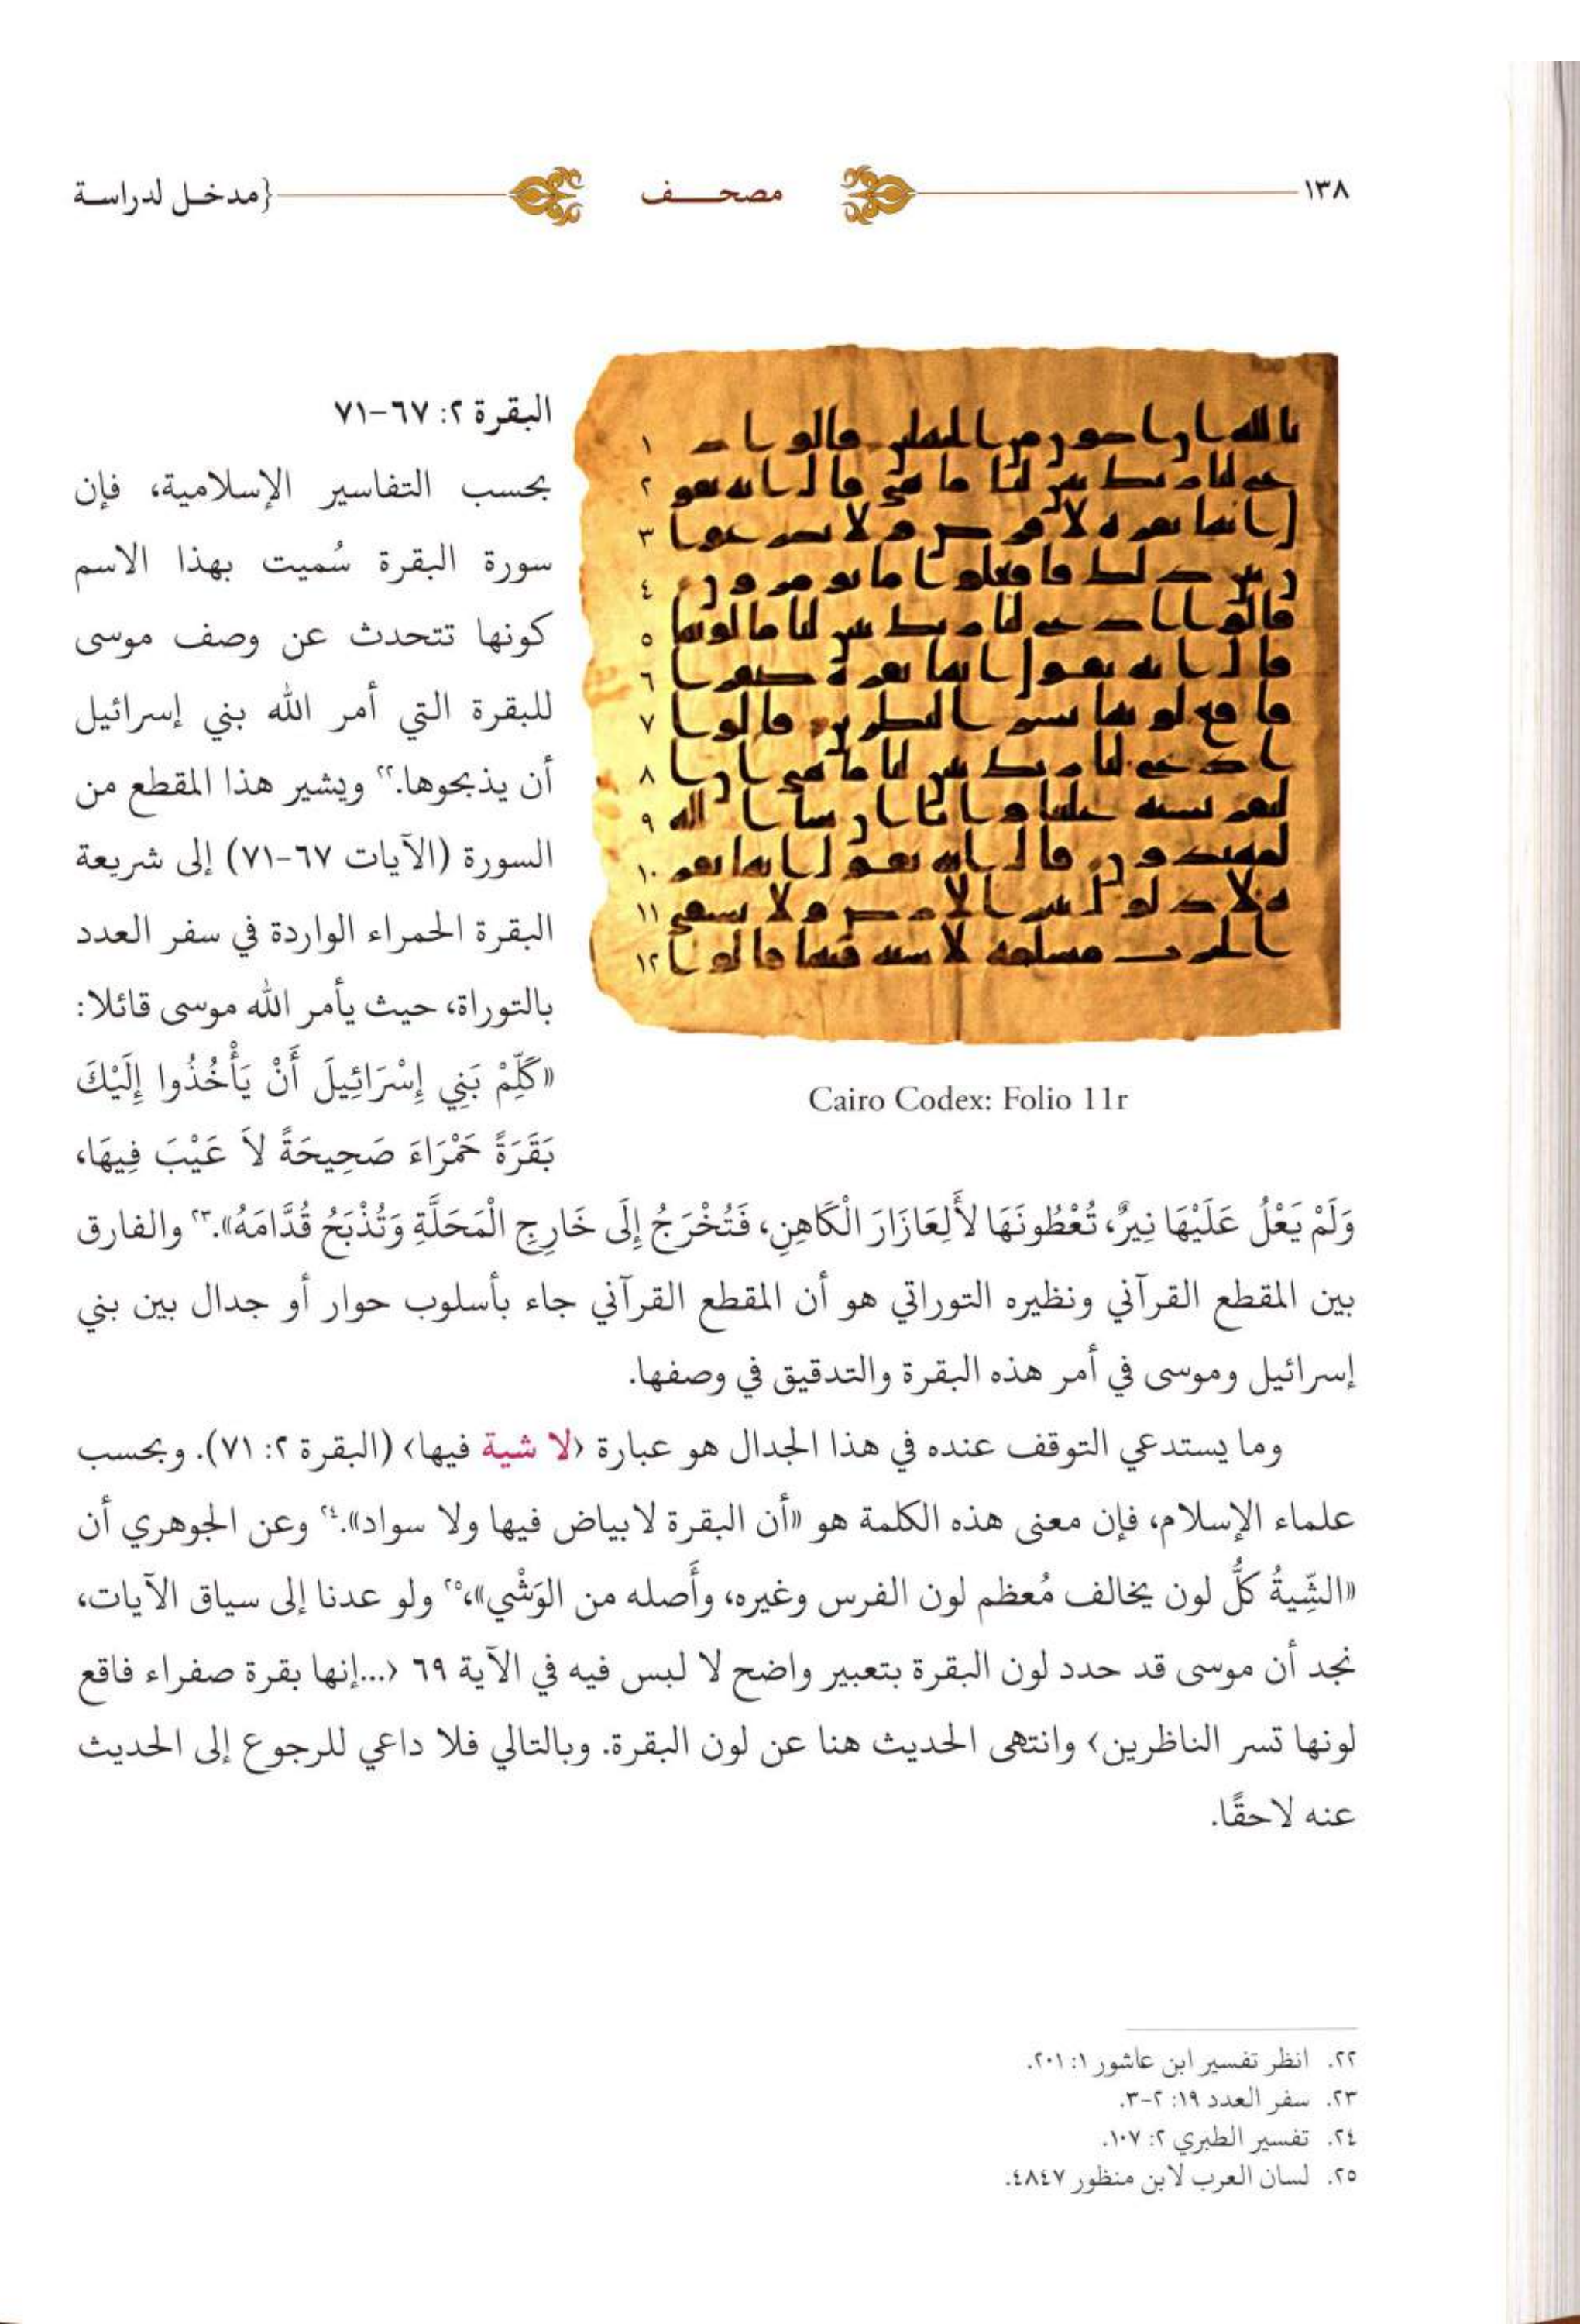 ١٣٨ مصحف {مدخل لدراسة
البقرة ٢: ٦٧-٧١
بحسب التفاسير الإسلامية، فإن
سورة البقرة سُميت بهذا الاسم
كونها تتحدث عن وصف موسى
للبقرة التي أمر الله بني إسرائيل
أن يذبحوها.٢٢ ويشير هذا المقطع من
السورة (الآيات ٦٧-٧١) إلى شريعة
البقرة الحمراء الواردة في سفر العدد
بالتوراة، حيث يأمر الله موسى قائلا:
«كَلِّمْ بَنِي إِسْرَائِيلَ أَنْ يَأْخُذُوا إِلَيْكَ
بَقَرَةً حَمْرَاءَ صَحِيحَةً لاَ عَيْبَ فِيهَا،
Cairo Codex: Folio 11r
وَلَمْ يَعْلُ عَلَيْهَا نِيرٌ، تُعْطُونَهَا لأَلِعَازَارَ الْكَاهِنِ، فَتُخْرَجُ إِلَى خَارِجِ الْمَحَلَّةِ وَتُذْبَحُ قُدَّامَهُ».٢٣ والفارق
بين المقطع القرآني ونظيره التوراتي هو أن المقطع القرآني جاء بأسلوب حوار أو جدال بين بني
إسرائيل وموسى في أمر هذه البقرة والتدقيق في وصفها.
وما يستدعي التوقف عنده في هذا الجدال هو عبارة ‹لا شية فيها› (البقرة ٢: ٧١). وبحسب
علماء الإسلام، فإن معنى هذه الكلمة هو «أن البقرة لا بياض فيها ولا سواد».٢٤ وعن الجوهري أن
«الشِّيةُ كلُّ لون يخالف مُعظم لون الفرس وغيره، وأَصله من الوَشْيِ»،٢٥ ولو عدنا إلى سياق الآيات،
نجد أن موسى قد حدد لون البقرة بتعبير واضح لا لبس فيه في الآية ٦٩ ‹...إنها بقرة صفراء فاقع
لونها تسر الناظرين› وانتهى الحديث هنا عن لون البقرة. وبالتالي فلا داعي للرجوع إلى الحديث
عنه لاحقًا.
٢٢. انظر تفسير ابن عاشور ١: ٢٠١.
٢٣. سفر العدد ١٩: ٢-٣.
٢٤. تفسير الطبري ٢: ١٠٧.
٢٥. لسان العرب لابن منظور ٤٨٤٧.